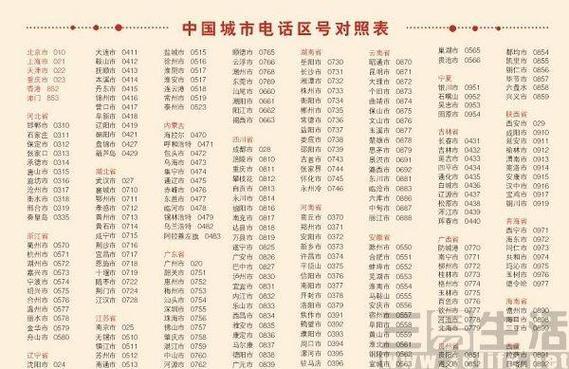 中国城市电话区号对照表
北京市 010
上海市 021
天津市 022
重庆市 023
香港 852
澳门 853
河北省
邯郸市 0310
石家庄 0311
保定市 0312
张家口 0313
承德市 0314
唐山市 0315
廊坊市 0316
沧州市 0317
衡水市 0318
邢台市 0319
秦皇岛 0335
浙江省
衢州市 0570
杭州市 0571
湖州市 0572
嘉兴市 0573
宁波市 0574
绍兴市 0575
台州市 0576
温州市 0577
丽水市 0578
金华市 0579
舟山市 0580
辽宁省
沈阳市 024
大连市 0411
鞍山市 0412
抚顺市 0413
本溪市 0414
丹东市 0415
锦州市 0416
营口市 0417
阜新市 0418
辽阳市 0419
朝阳市 0421
盘锦市 0427
葫芦岛 0429
湖北省
武汉市 027
襄城市 0710
鄂州市 0711
孝感市 0712
黄州市 0713
黄石市 0714
咸宁市 0715
荆沙市 0716
宜昌市 0717
恩施市 0718
十堰市 0719
随枣市 0722
荆门市 0724
江汉市 0728
江苏省
南京市 025
无锡市 0510
镇江市 0511
苏州市 0512
南通市 0513
扬州市 0514
盐城市 0515
徐州市 0516
淮阴市 0517
淮安市 0517
连云港 0518
常州市 0519
泰州市 0523
内蒙古
海拉尔 0470
呼和浩特 0471
包头市 0472
乌海市 0473
集宁市 0474
通辽市 0475
赤峰市 0476
东胜市 0477
临河市 0478
锡林浩特 0479
乌兰浩特 0482
阿拉善左旗 0483
广东省
广州市 020
韶关市 0751
惠州市 0752
梅州市 0753
汕头市 0754
深圳市 0755
珠海市 0756
佛山市 0757
肇庆市 0758
湛江市 0759
中山市 0760
河源市 0762
清远市 0763
顺德市 0765
云浮市 0766
潮州市 0768
东莞市 0769
汕尾市 0660
潮阳市 0661
阳江市 0662
揭西市 0663
四川省
成都市 028
涪陵市 0810
重庆市 0811
攀枝花 0812
自贡市 0813
永川市 0814
绵阳市 0816
南充市 0817
达县市 0818
万县市 0819
遂宁市 0825
广安市 0826
巴中市 0827
泸州市 0830
宜宾市 0831
内江市 0832
乐山市 0833
西昌市 0834
雅安市 0835
康定市 0836
马尔康 0837
德阳市 0838
广元市 0839
泸州市 0840
湖南省
岳阳市 0730
长沙市 0731
湘潭市 0732
株州市 0733
衡阳市 0734
郴州市 0735
常德市 0736
益阳市 0737
娄底市 0738
邵阳市 0739
吉首市 0743
张家界 0744
怀化市 0745
永州冷 0746
河南省
商丘市 0370
郑州市 0371
安阳市 0372
新乡市 0373
许昌市 0374
平顶山 0375
信阳市 0376
南阳市 0377
开封市 0378
洛阳市 0379
焦作市 0391
鹤壁市 0392
濮阳市 0393
周口市 0394
漯河市 0395
驻马店 0396
云南省
昭通市 0870
昆明市 0871
大理市 0872
个旧市 0873
曲靖市 0874
保山市 0875
文山市 0876
玉溪市 0877
楚雄市 0878
思茅市 0879
景洪市 0691
潞西市 0692
东川市 0881
临沧市 0883
六库市 0886
中甸市 0887
丽江市 0888
安徽省
滁州市 0550
合肥市 0551
蚌埠市 0552
芜湖市 0553
淮南市 0554
马鞍山 0555
安庆市 0556
宿州市 0557
阜阳市 0558
黄山市 0559
淮北市 0561
铜陵市 0562
宣城市 0563
六安市 0564
巢湖市 0565
贵池市 0566
宁夏
银川市 0951
石嘴山 0952
吴忠市 0953
固原市 0954
吉林省
长春市 0431
吉林市 0432
延吉市 0433
四平市 0434
通化市 0435
白城市 0436
辽源市 0437
松原市 0438
浑江市 0439
珲春市 0440
广西省
防城港 0770
南宁市 0771
柳州市 0772
桂林市 0773
梧州市 0774
玉林市 0775
百色市 0776
钦州市 0777
河池市 0778
北海市 0779
贵州省
贵阳市 0851
遵义市 0852
安顺市 0853
都均市 0854
凯里市 0855
铜仁市 0856
毕节市 0857
六盘水 0858
兴义市 0859
陕西省
西安市 029
咸阳市 0910
延安市 0911
榆林市 0912
渭南市 0913
商洛市 0914
安康市 0915
汉中市 0916
宝鸡市 0917
铜川市 0919
青海省
海晏市 0970
西宁市 0971
海东市 0972
同仁市 0973
共和市 0974
玛沁市 0975
玉树市 0976
德令哈 0977
海南省
儋州市 0890
海口市 0898
三亚市 0899
西藏
拉萨市 0891